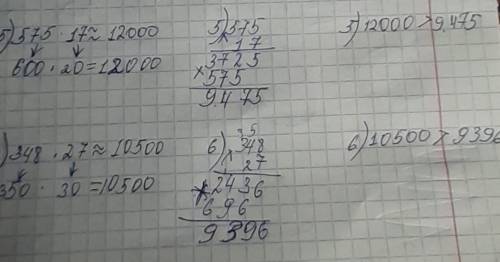 5) 575 · 17 ≈ 12000
600 · 20 = 12000
5) 575
17
3725
× 575
9.475
5) 12000 > 9.475
) 348 · 27 ≈ 10500
350 · 30 = 10500
35
6) 348
27
2436
696
9396
6) 10500 > 9396